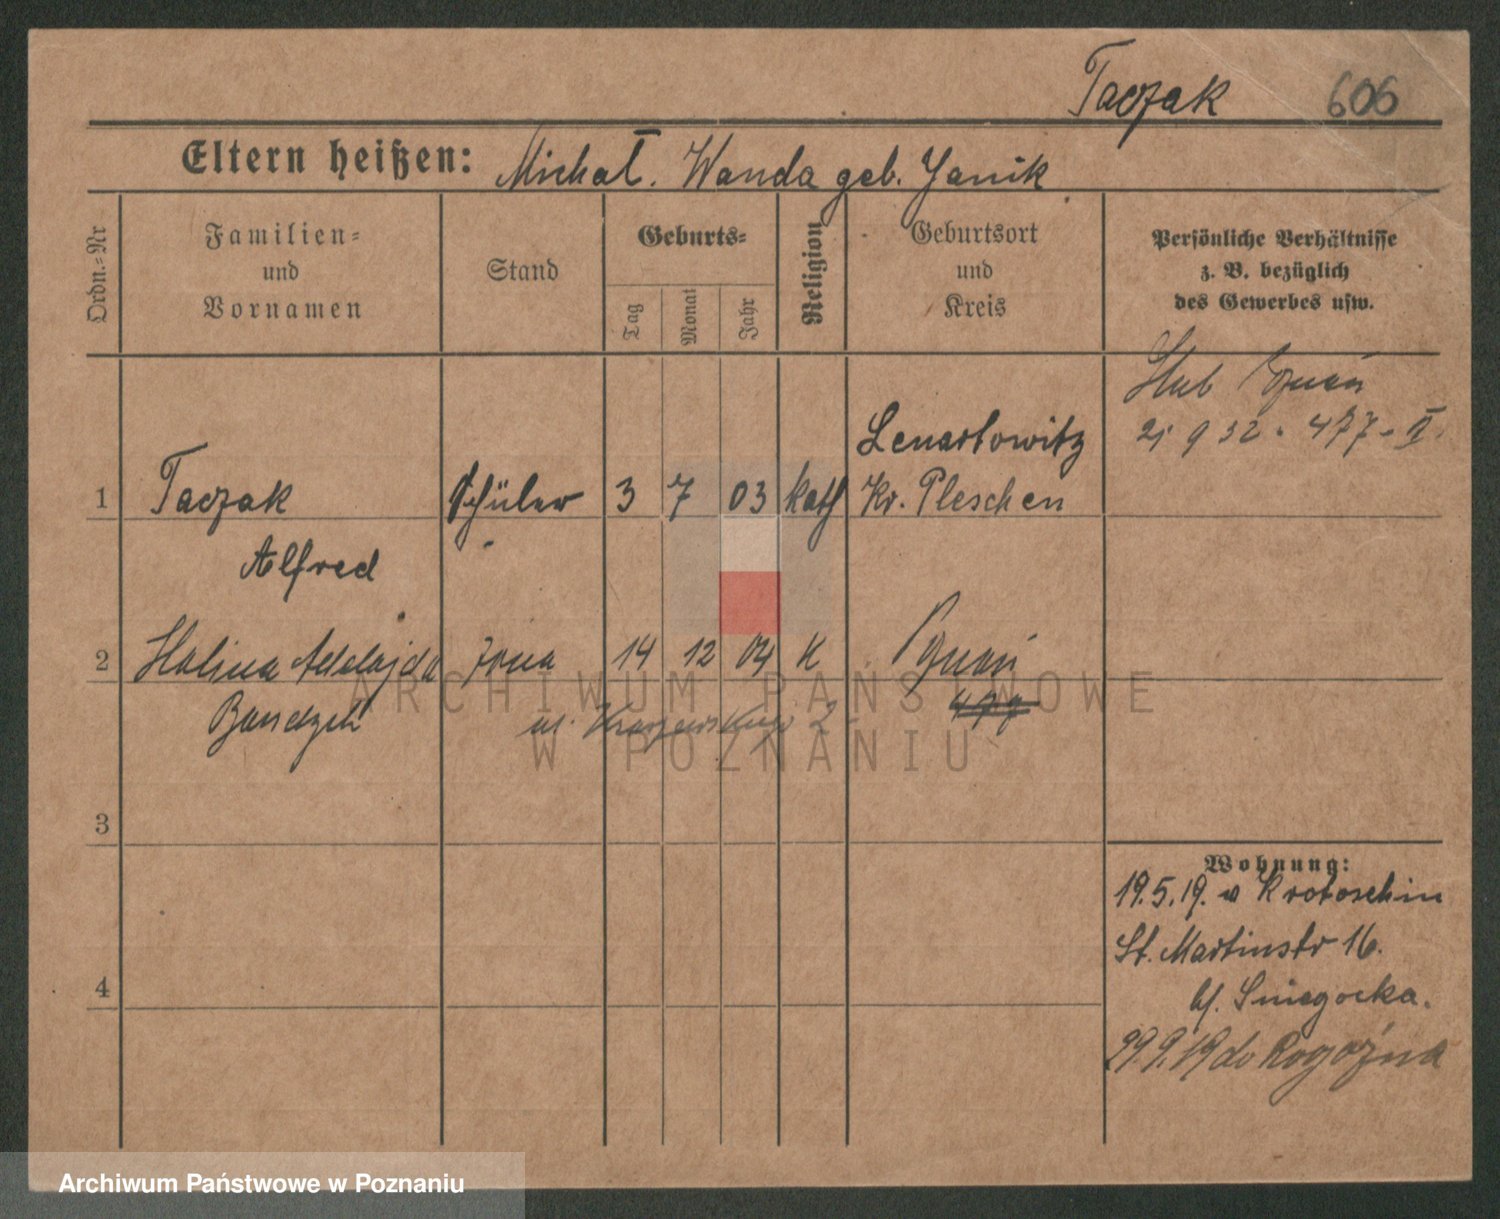 Taczak 606
Eltern heißen: Michał. Wanda geb. Janik
Ordn.-Nr
Familien-
und
Vornamen
Stand
Geburts-
Tag
Monat
Jahr
Religion
Geburtsort
und
Kreis
Persönliche Verhältnisse
z. B. bezüglich
des Gewerbes usw.
Ślub Poznań
21 9 32. 477-II.
Lenartowitz
1 Taczak Schüler 3 7 03 kath Kr. Pleschen
Alfred
2 Halina Adelajda żona 14 12 04 K Poznań
ul. Kraszewskiego 2
3
Wohnung:
19.5.19. v Krotoschin
St. Martinstr 16.
4
b/. Sniegocka.
29.9.19 do Rogoźna
ARCHIWUM PAŃSTWOWE
W POZNANIU
Archiwum Państwowe w Poznaniu